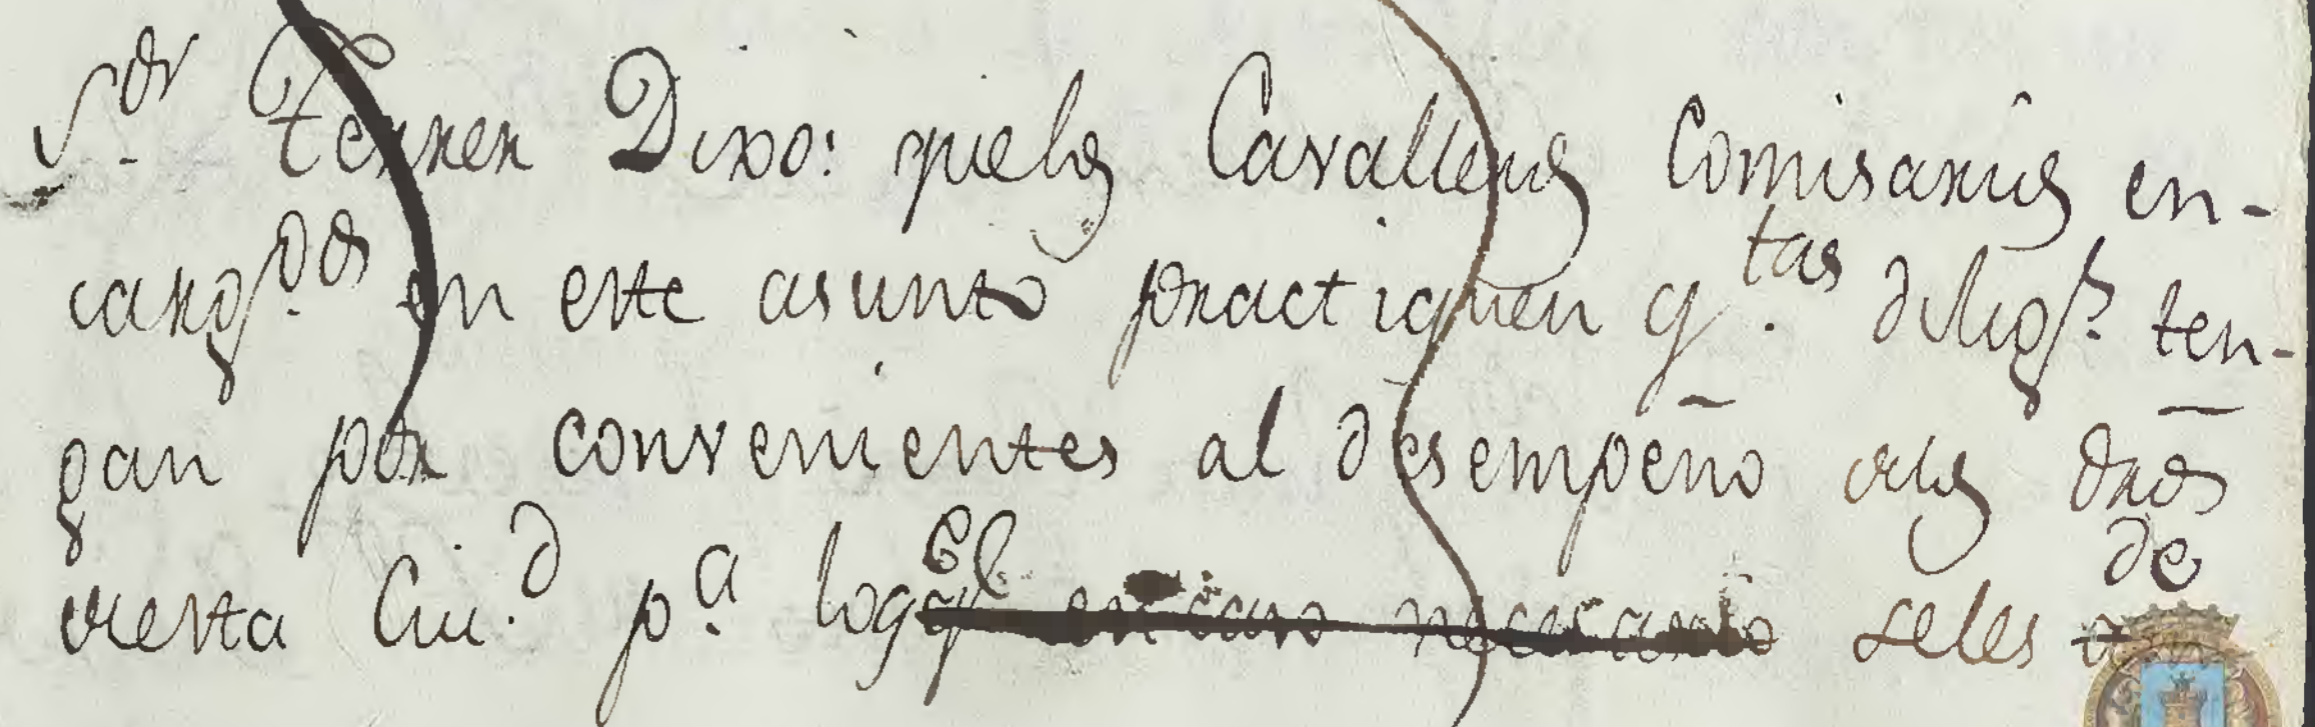 S.or Ferrer Dixo: que los Cavalleros Comisarios en-
carg.dos en este asunto practiquen q.tas dilig.s ten-
gan por convenientes al desempeño de los dros
de esta Ciu.d p.a lo q.e en caso necesario El se les de